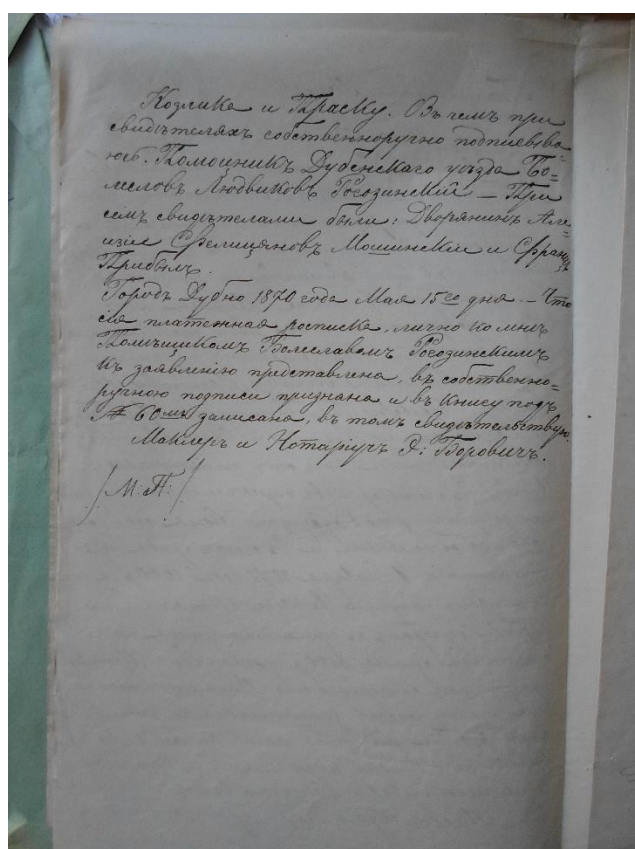 Козлике и Праску. Въ чемъ при
свидѣтеляхъ собственноручно подписыва=
юсь. Помощникъ Дубенскаго уѣзда Бо=
леславъ Людвиковъ Рогозинскій — При
семъ свидѣтелями были: Дворянинъ Але=
изій Фелиціановъ Мошинскій и Францъ
Прибылъ.
Городъ Дубно 1870 года Мая 15го дня. — Что
сія платежная росписка, лично ко мнѣ
Помѣщикомъ Болеславомъ Рогозинскимъ
къ заявленію представлена, въ собственно=
ручной подписи признана и въ книгу подъ
№ 60мъ записана, въ томъ свидѣтельствую.
Маклеръ и Нотаріусъ Э: Боровичъ.
/М: П:/